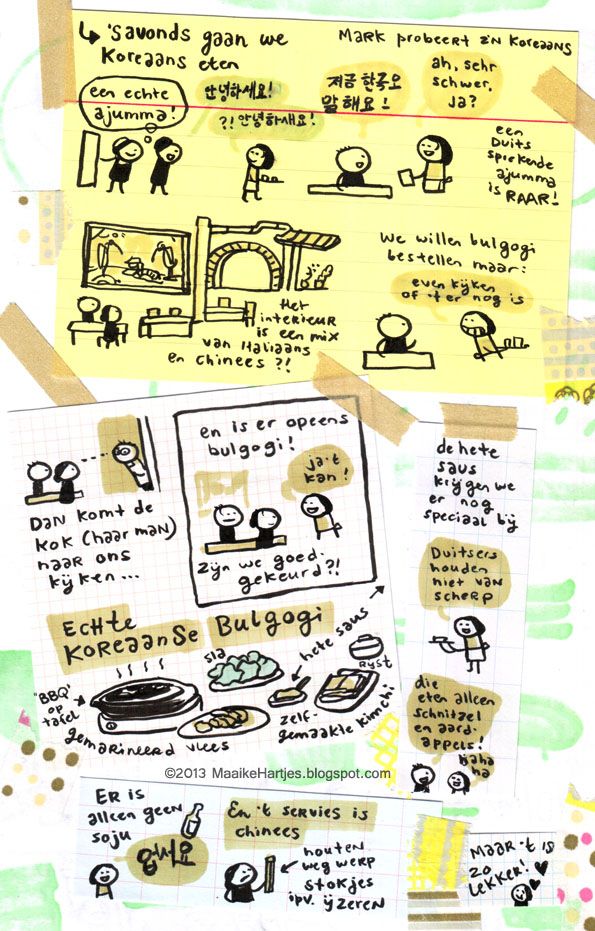 ↳ 'Savonds gaan we
Koreaans eten
MARK probeert Z'N Koreaans
een echte
ajumma!
안녕하세요!
?! 안녕하새요!
저금 한국오
말해요!
ah, sehr
schwer,
ja?
een
Duits
sprekende
ajumma
is RAAR!
Het
interieur
is een mix
van Italiaans
en Chinees ?!
We willen bulgogi
bestellen maar:
even kijken
of 't er nog is
Dan komt de
kok (haar man)
naar ons
kijken ...
en is er opeens
bulgogi!
ja 't
kan!
Zijn we goed-
gekeurd?!
de hete
saus
krijgen we
er nog
speciaal bij
Duitsers
houden
niet van
scherp
die
eten alleen
schnitzel
en aard-
appels!
haha
ha
Echte
Koreaanse Bulgogi
"BBQ"
op
tafel
gemarineerd vlees
sla
hete saus
rijst
zelf-
gemaakte kimchi
©2013 MaaikeHartjes.blogspot.com
Er is
alleen geen
soju
En 't servies is
chinees
houten
weg werp
stokjes
ipv. ijzeren
Maar 't is
zo
lekker!